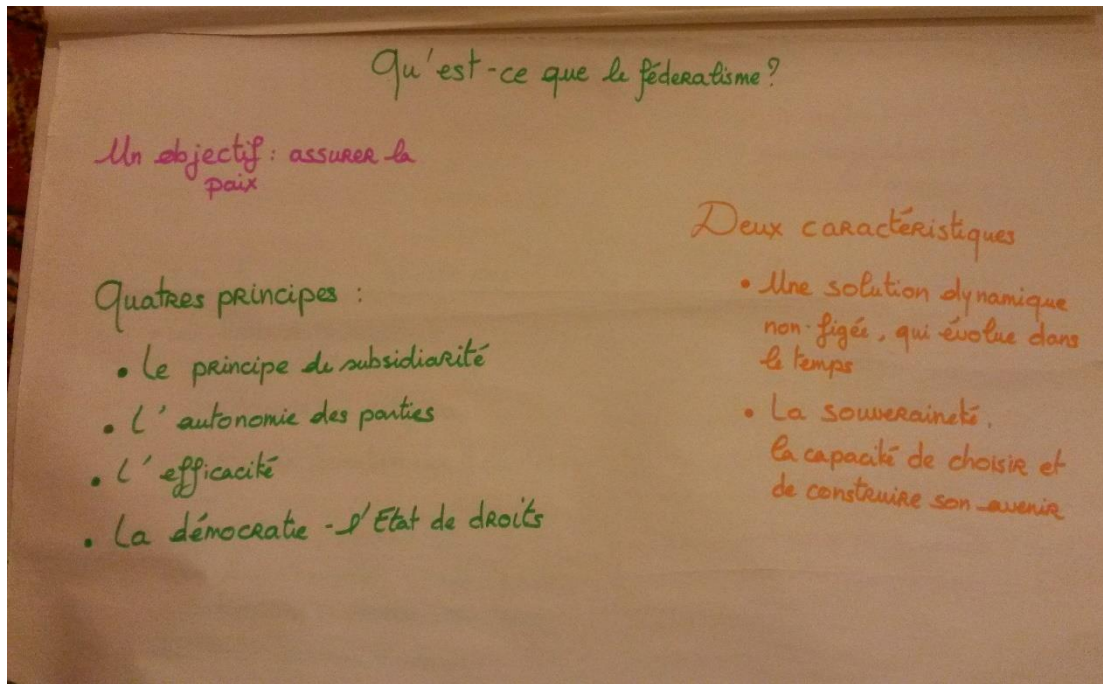 Qu'est-ce que le féderalisme?
Un objectif: assurer la
paix
Quatres principes :
• Le principe de subsidiarité
• L'autonomie des parties
• L'efficacité
• La démocratie - l'Etat de droits
Deux caractéristiques
• Une solution dynamique
non-figée, qui évolue dans
le temps
• La souveraineté,
la capacité de choisir et
de construire son avenir